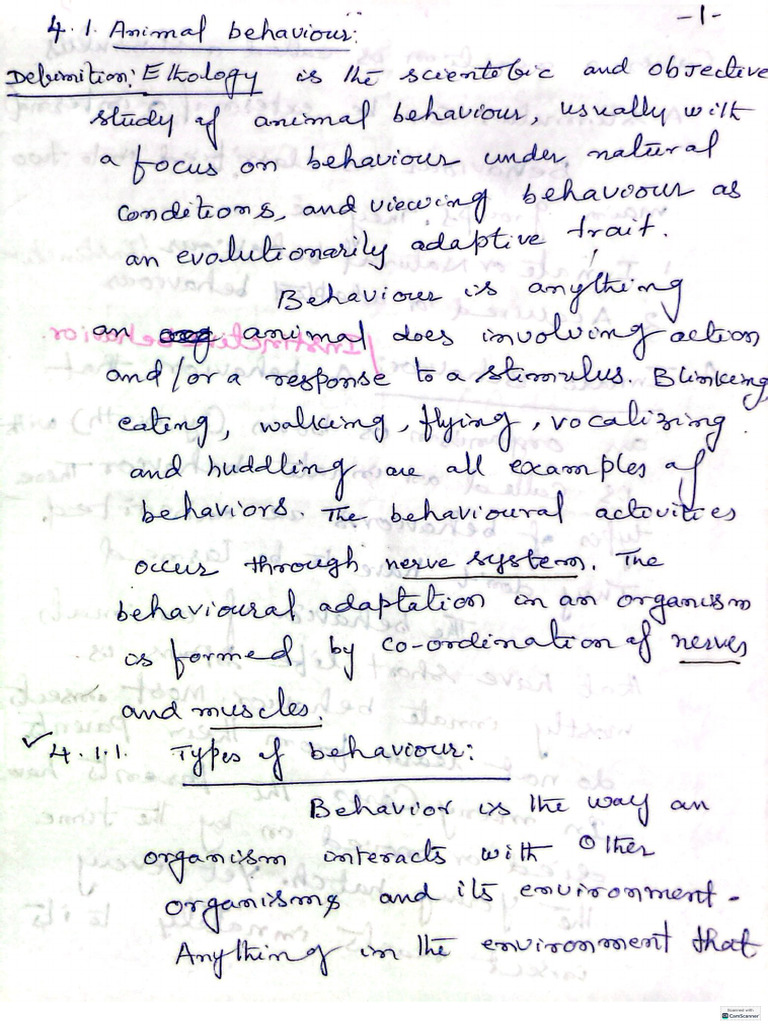 -1-
4.1. Animal behaviour:
Definition: Ethology is the scientific and objective
study of animal behaviour, usually with
a focus on behaviour under natural
conditions, and viewing behaviour as
an evolutionarily adaptive trait.
Behaviour is anything
an animal does involving action
and/or a response to a stimulus. Blinking,
eating, walking, flying, vocalizing
and huddling are all examples of
behaviors. The behavioural activities
occur through nerve system. The
behavioural adaptation in an organism
is formed by co-ordination of nerves
and muscles.
4.1.1. Types of behaviour:
Behavior is the way an
organism interacts with other
organisms and its environment.
Anything in the environment that
Scanned with
CamScanner